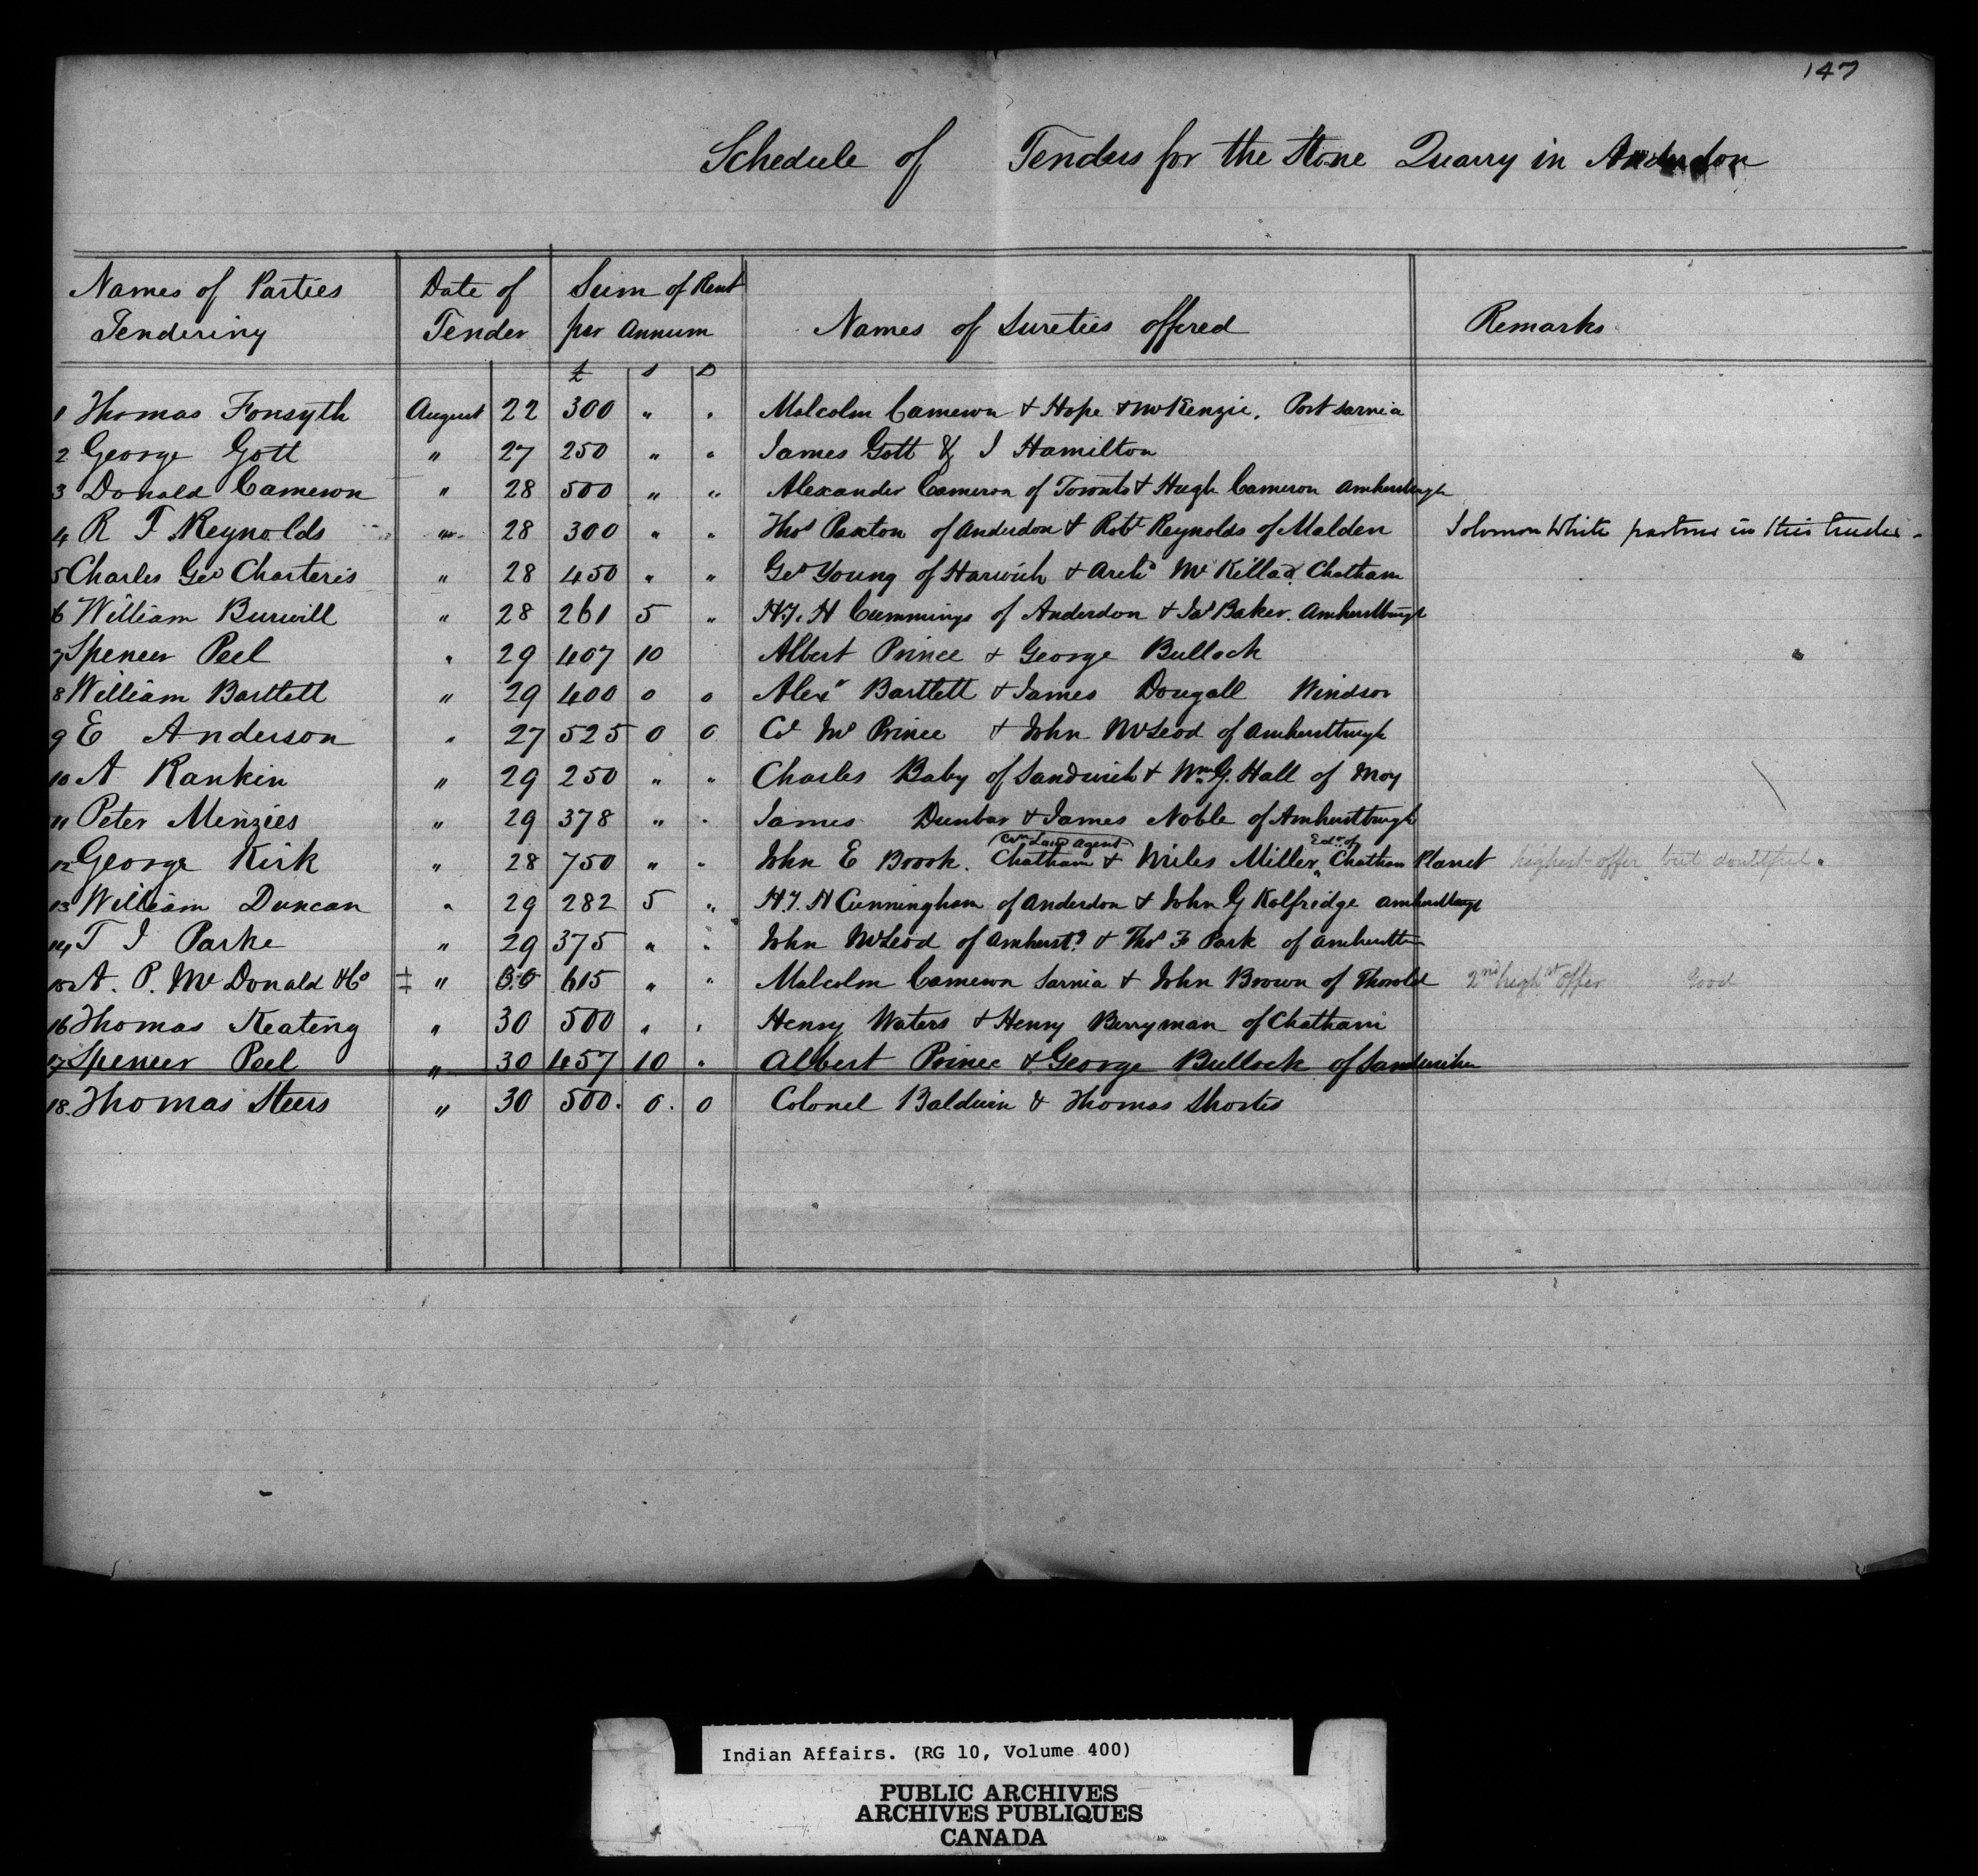 147
Schedule of Tenders for the Stone Quarry in Anderdon
Names of Parties Tendering | Date of Tender | Sum of Rent per Annum | Names of Sureties offered | Remarks
£ s D
1 Thomas Fonsyth August 22 300 " " Malcolm Cameron & Hope & McKenzie, Port Sarnia
2 George Gott " 27 250 " " James Gott & J Hamilton
3 Donald Cameron " 28 500 " " Alexander Cameron of Toronto & Hugh Cameron Amherstburgh
4 R T Reynolds " 28 300 " " Thos Paxton of Anderdon & Robt Reynolds of Malden Solomon White partner in this tender
5 Charles Geo Charteris " 28 450 " " Geo Young of Harwich & Archd Mc Chatham
6 William Burwill " 28 261 5 " H. Cummings of Anderdon & Jas Baker. Amherstburgh
7 Spencer Peel " 29 407 10 Albert Prince & George Bullock
8 William Bartlett " 29 400 0 0 Alexr Bartlett & James Dougall Windsor
9 E Anderson " 27 525 0 0 Prince & John McLeod of Amherstburgh
10 A Rankin " 29 250 " " Charles Baby of Sandwich & Wm G. Hall of Moy
11 Peter Menzies " 29 378 " " James Dunbar & James Noble of Amherstburgh
Cwn Land Agent Edr of
12 George Kirk " 28 750 " " John E Brook. Chatham & Miles Miller, Chatham Planet highest offer but doubtful.
13 William Duncan " 29 282 5 " H. Cunningham of Anderdon & John G Kolfridge Amherstburgh
14 T J Parke " 29 375 " " John McLeod of Amherstg & Thos F Park of Amherstbn
15 A. P. McDonald & Co ‡ " 30 615 " " Malcolm Cameron Sarnia & John Brown of Thorold 2nd highst offer Good
16 Thomas Keating " 30 500 " " Henry Waters & Henry Berryman of Chatham
17 Spencer Peel " 30 457 10 " Albert Prince & George Bullock of Sandwich
18. Thomas Steers " 30 500. 0. 0 Colonel Baldwin & Thomas Shortis
Indian Affairs. (RG 10, Volume 400)
PUBLIC ARCHIVES
ARCHIVES PUBLIQUES
CANADA